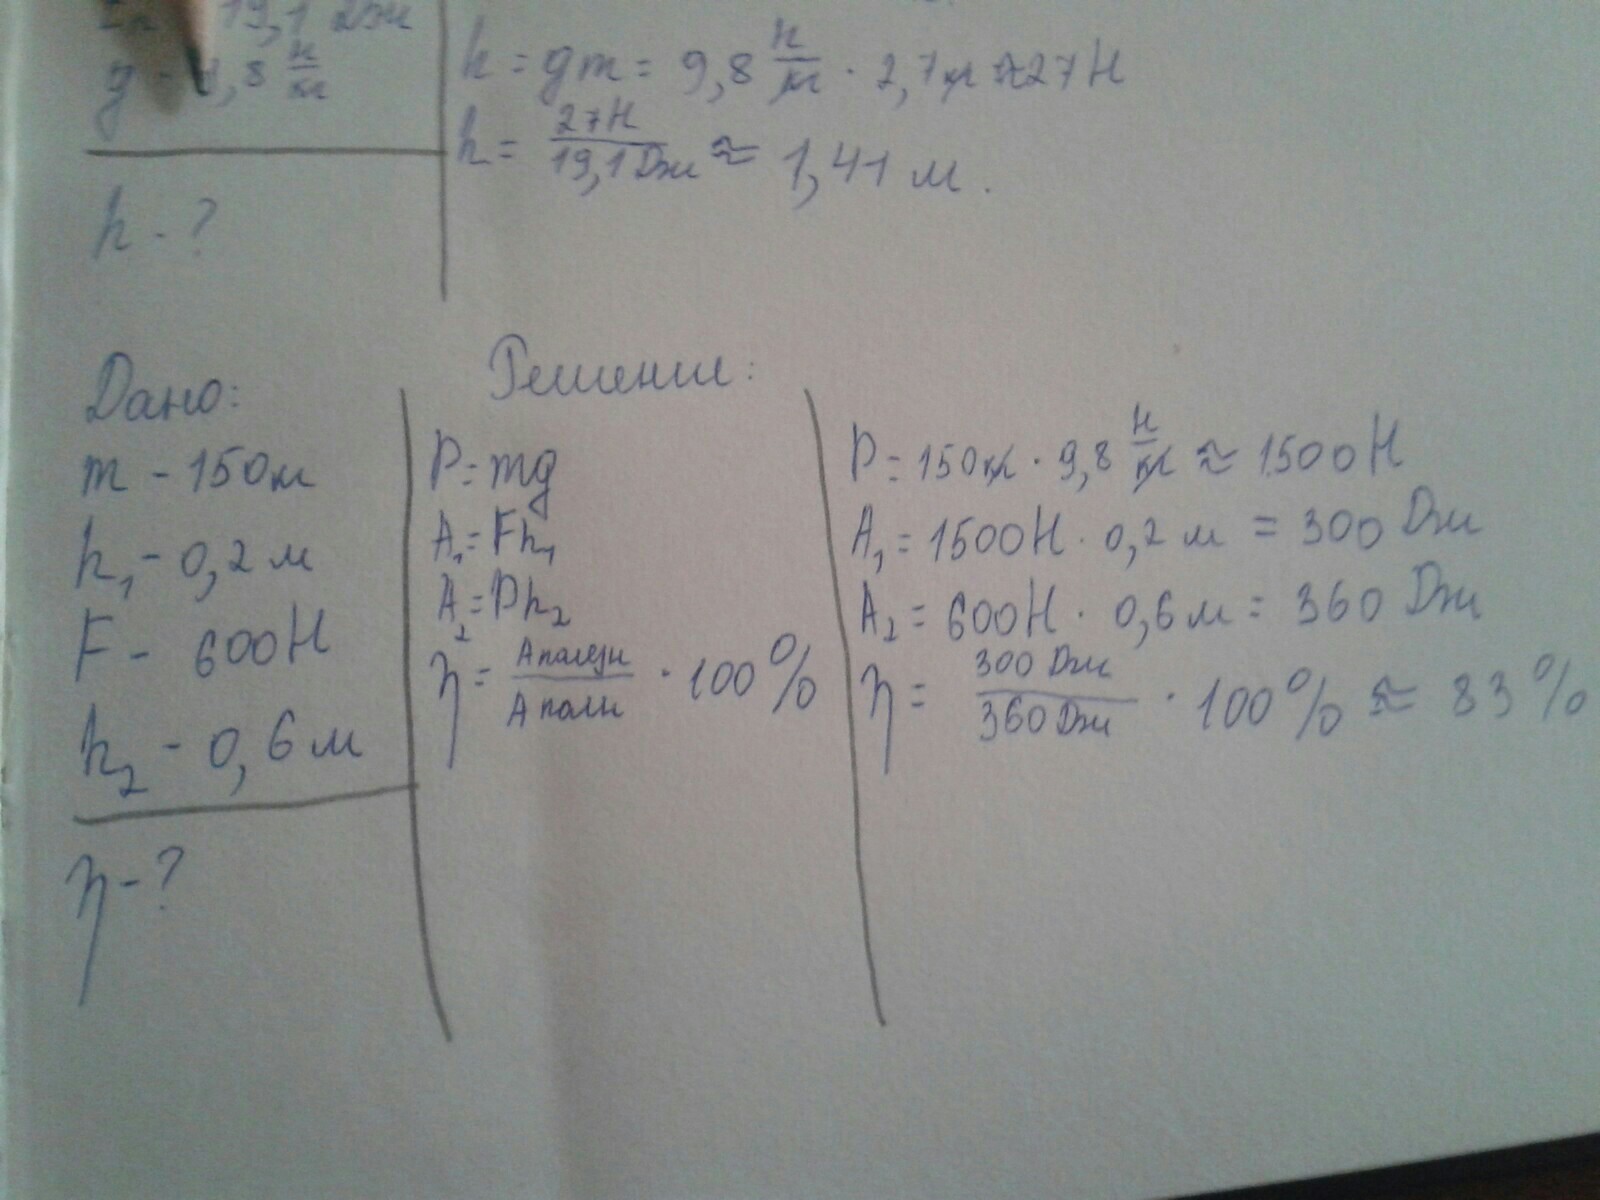 19,1 Дж
g - 9,8 н/кг
h - ?
h = gm = 9,8 н/кг · 2,7 кг ≈ 27 Н
h = 27Н/19,1Дж ≈ 1,41 м.
Дано:
m - 150м
h₁ - 0,2 м
F - 600Н
h₂ - 0,6 м
η - ?
Решение:
P = mg
A₁ = Fh₁
A₂ = Ph₂
η = Aполезн/Aполн · 100%
P = 150кг · 9,8 н/кг ≈ 1500Н
A₁ = 1500Н · 0,2 м = 300 Дж
A₂ = 600Н · 0,6 м = 360 Дж
η = 300 Дж/360 Дж · 100% ≈ 83%